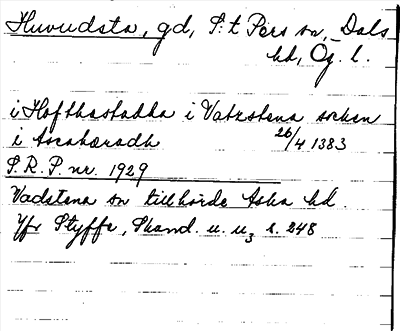 Huvudsta, gd, S:t Pers sn, Dals
hd, Ög. l.
i Hofthastadha i Vatzstena sokn
i Ascahæradh 26/4 1383
S.R.P. nr. 1929
Vadstena sn tillhörde Aska hd.
Jfr Styffe, Skand. u. u3 s. 248